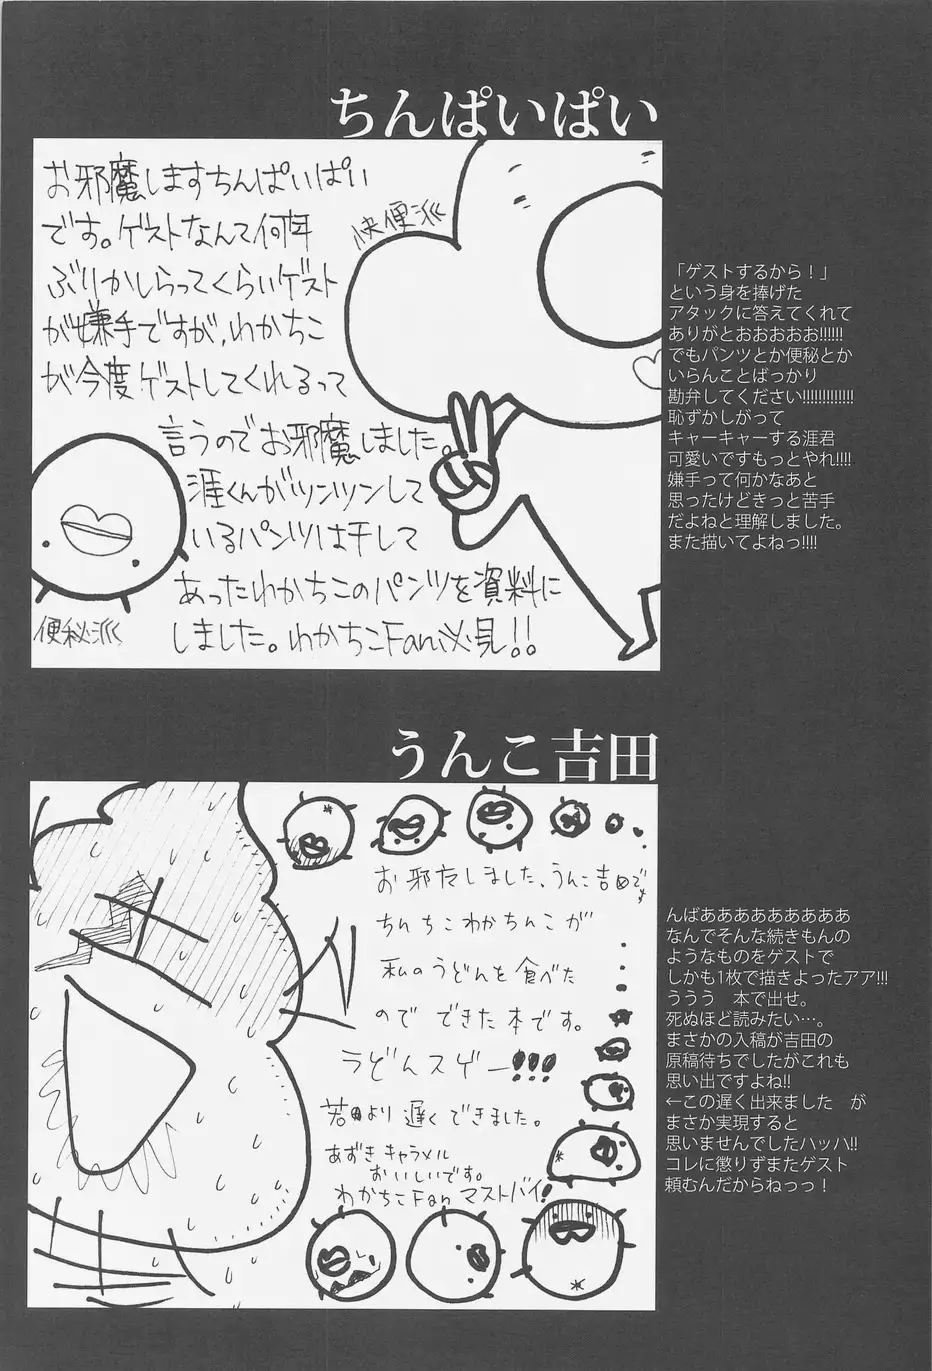 ちんぱいぱい
お邪魔しますちんぱいぱい
です。ゲストなんて何年
ぶりかしらってくらいゲスト
が嫌手ですが、わかちこ
が今度ゲストしてくれるって
言うのでお邪魔しました。
涯くんがツンツンして
いるパンツは干して
あったわかちこのパンツを資料に
しました。わかちこFan必見!!
快便派
便秘派
「ゲストするから！」
という身を捧げた
アタックに答えてくれて
ありがとおおおおお!!!!!!
でもパンツとか便秘とか
いらんことばっかり
勘弁してください!!!!!!!!!!!!!
恥ずかしがって
キャーキャーする涯君
可愛いですもっとやれ!!!!
嫌手って何かなあと
思ったけどきっと苦手
だよねと理解しました。
また描いてよねっ!!!!
うんこ吉田
お邪魔しました、うんこ吉田です
ちんちこわかちんこが
私のうどんを食べた
のでできた本です。
うどんスゲー!!!
若田より遅くできました。
あずきキャラメル
おいしいです。
わかちこFanマストバイ!
んばああああああああああ
なんでそんな続きもんの
ようなものをゲストで
しかも1枚で描きよったアア!!!
ううう　本で出せ。
死ぬほど読みたい…。
まさかの入稿が吉田の
原稿待ちでしたがこれも
思い出ですよね!!
←この遅く出来ました　が
まさか実現すると
思いませんでしたハッハ!!
コレに懲りずまたゲスト
頼むんだからねっっ！